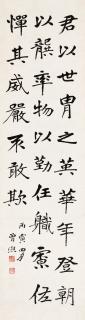 君以世冑之英華年登朝
以龔率物以勤任職寮佐
憚其威嚴不敢欺
丙寅四月
曾熙